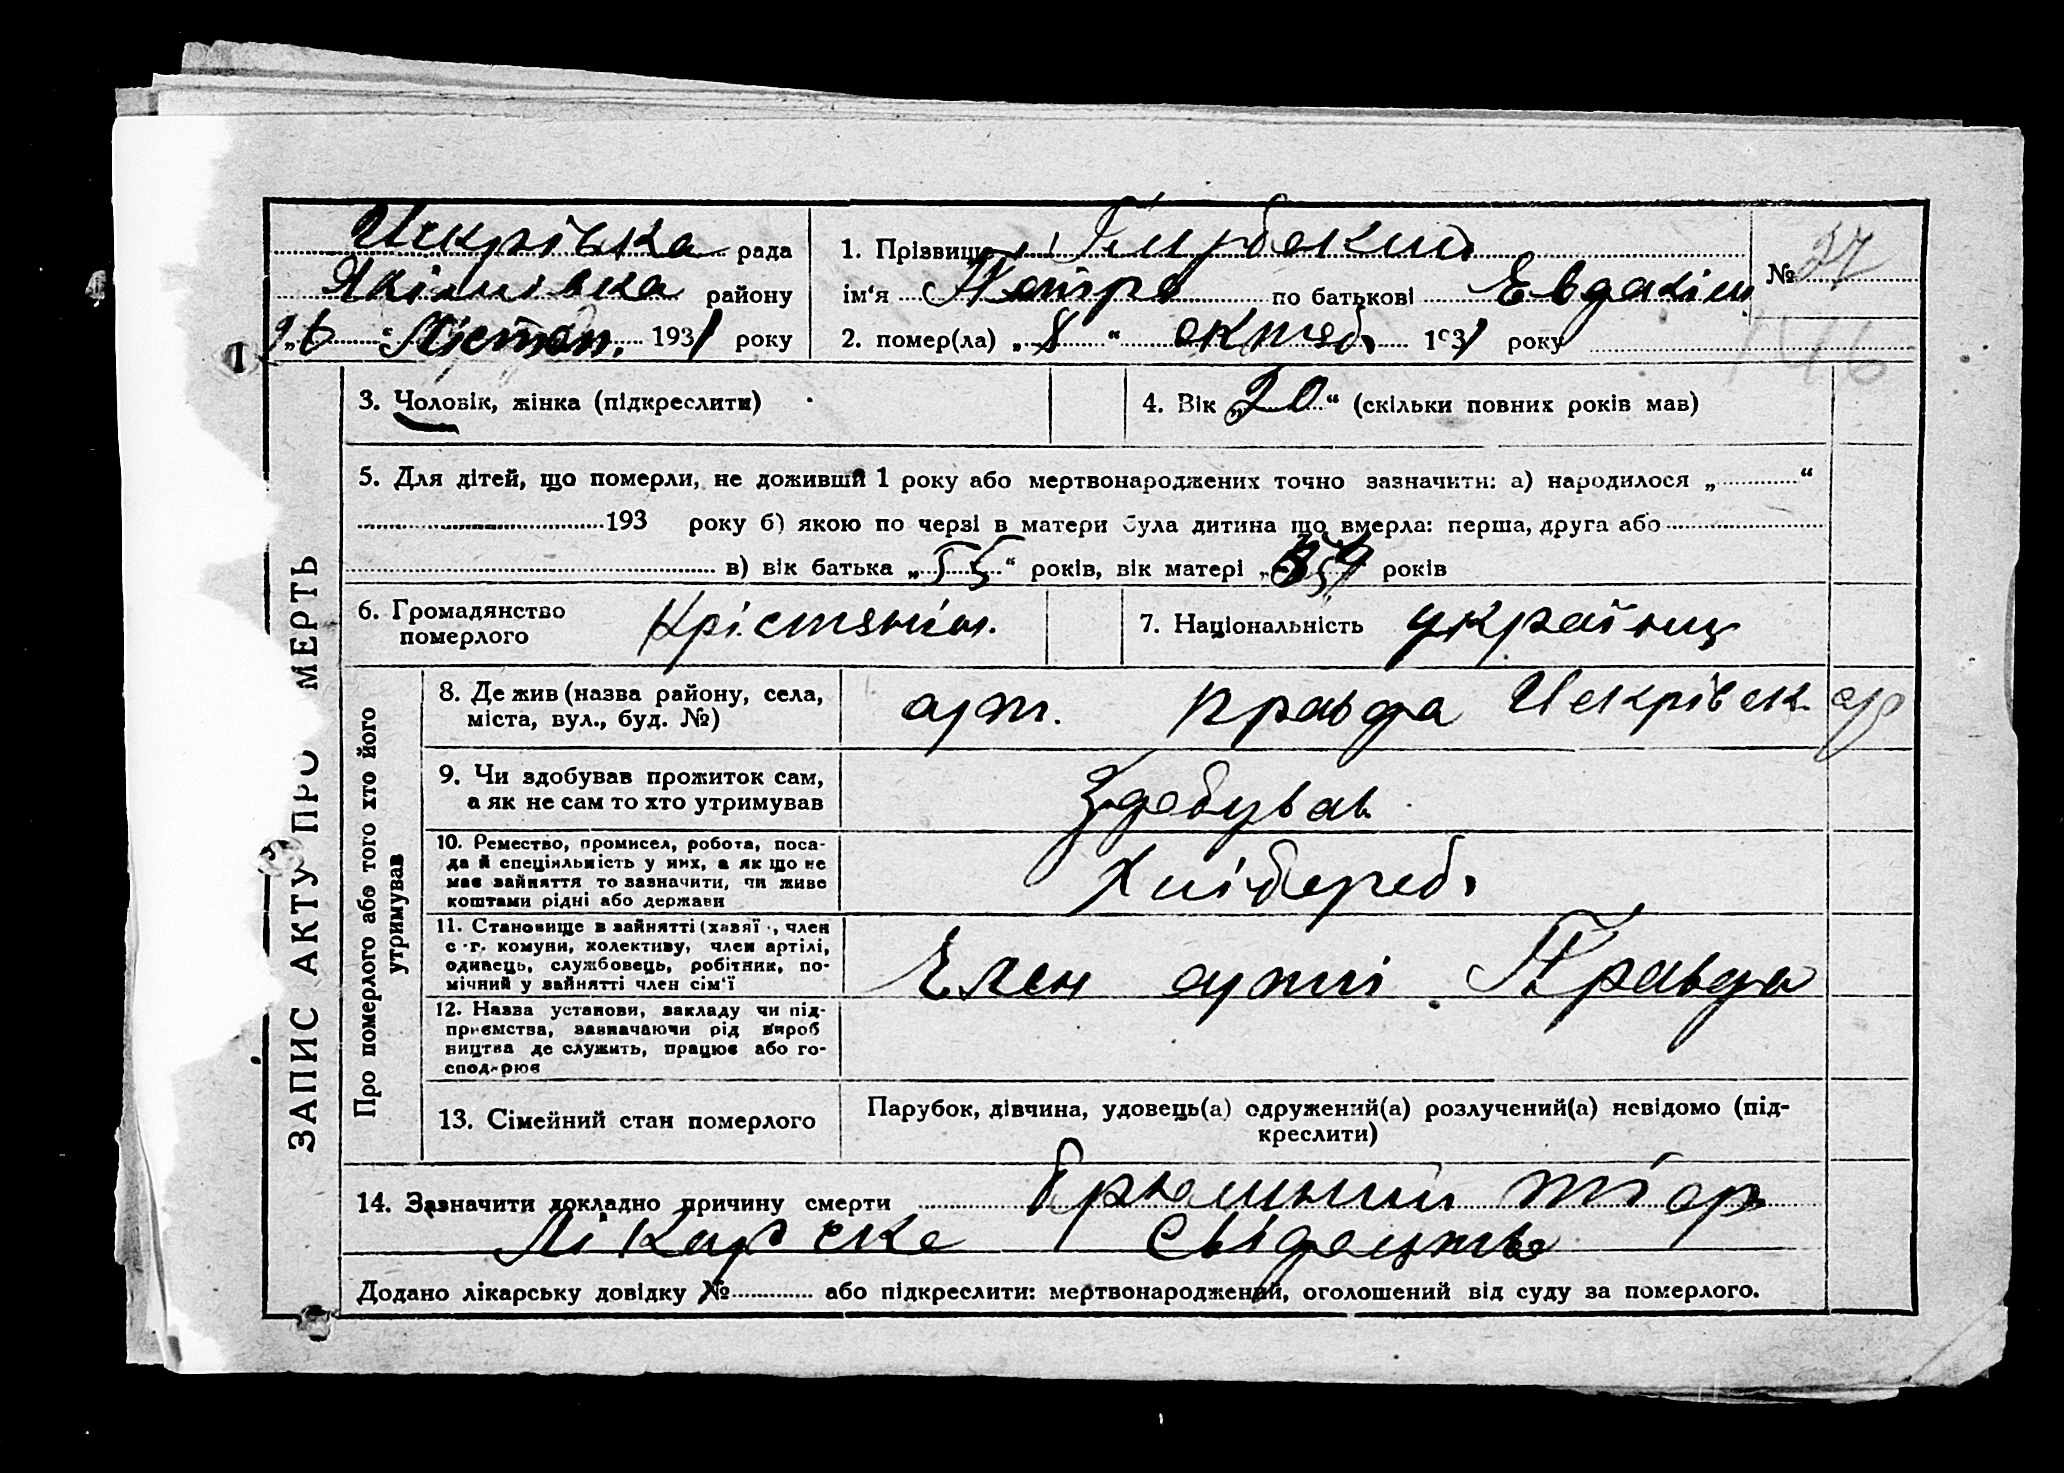 Искрівка рада
Якимівка району
26 Листоп. 1931 року
1. Прізвище
ім'я Петро по батькові Евдакім
2. помер(ла) „ 8 “ октяб. 1931 року
№ 37
146
ЗАПИС АКТУ ПРО МЕРТЬ
3. Чоловік, жінка (підкреслити)
4. Вік „20“ (скільки повних років мав)
5. Для дітей, що померли, не доживши 1 року або мертвонароджених точно зазначити: а) народилося „ “
193 року б) якою по черзі в матери була дитина що вмерла: перша, друга або
в) вік батька „55“ років, вік матері „ років
6. Громадянство
померлого
Крістянін.
7. Національність українц
Про померлого або того хто його
утримував
8. Де жив (назва району, села,
міста, вул., буд. №)
арт. правда Искрівск. ср
9. Чи здобував прожиток сам,
а як не сам то хто утримував
Здобував
10. Ремество, промисел, робота, поса-
да й спеціяльність у них, а як що не
має зайняття то зазначити, чи живе
коштами рідні або держави
Хлібороб.
11. Становище в зайнятті (хазяї , член
с.-г. комуни, колективу, член артілі,
одинець, службовець, робітник, по-
мічний у зайнятті член сім'ї
Член артілі Правда
12. Назва установи, закладу чи під-
приємства, зазначаючи рід вироб
ництва де служить, працює або го-
сподарює
13. Сімейний стан померлого
Парубок, дівчина, удовець(а) одружений(а) розлучений(а) невідомо (під-
креслити)
14. Зазначити докладно причину смерти
Лікарске свідоцтво
Додано лікарську довідку № або підкреслити: мертвонароджений, оголошений від суду за померлого.